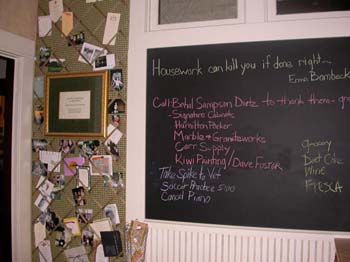 Housework can kill you if done right~
Erma Bombeck
Call: Bethel Sampson Dietz to thank them -
- Signature Cabinets
- Hamilton Parker
- Marble & Graniteworks
- Carr Supply
- Kiwi Painting/Dave Foster
Take Spike to Vet
Soccer Practice 5:00
Cancel Piano
Grocery
Diet Coke
Wine
FRESCA